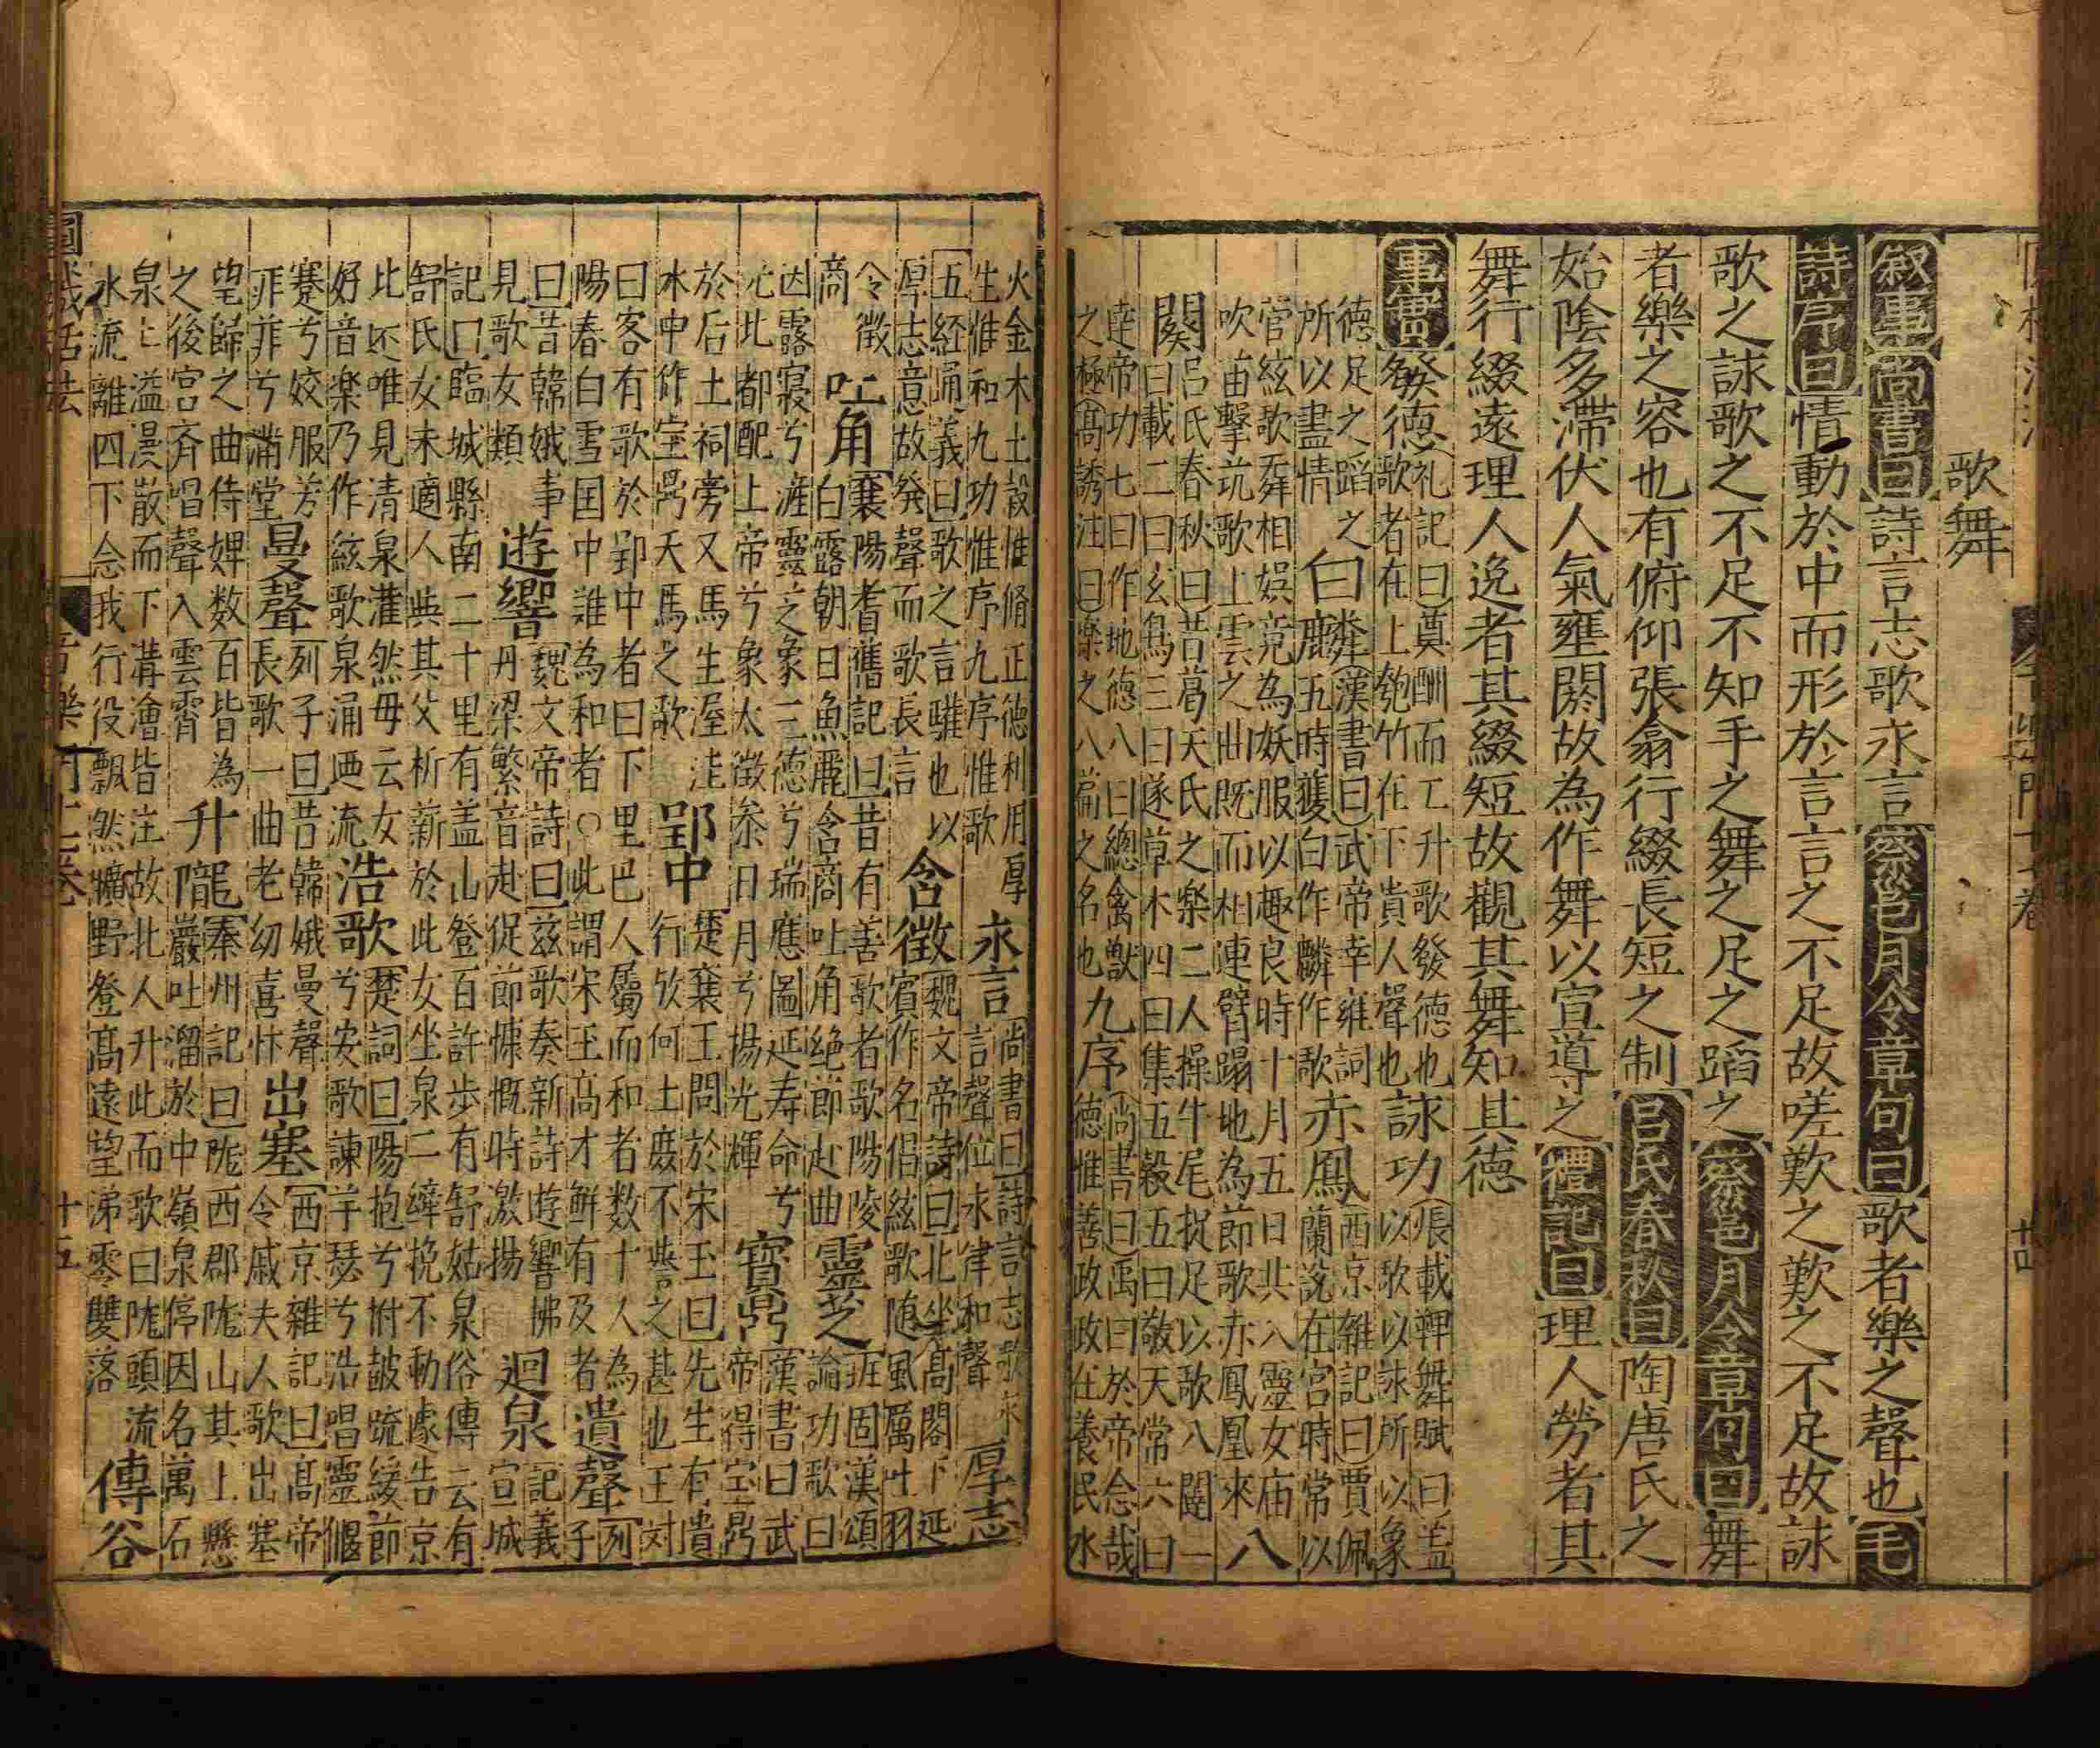 歌舞
叙事尚書曰詩言志歌永言蔡邕月令章句曰歌者樂之聲也毛
詩序曰情動於中而形於言言之不足故嗟歎之歎之不足故詠
歌之詠歌之不足不知手之舞之足之蹈之蔡邕月令章句曰舞
者樂之容也有俯仰張翕行綴長短之制呂氏春秋曰陶唐氏之
始陰多滯伏人氣壅閼故為作舞以宣導之禮記曰理人勞者其
舞行綴遠理人逸者其綴短故觀其舞知其德
事實發德
礼記曰奠酬而工升歌發德也
歌者在上匏竹在下貴人聲也
詠功
張載鞞舞賦曰盖
以歌以詠所以象
德足之蹈之
所以盡情
白麟
漢書曰武帝幸雍詞
鹿五時獲白作麟作歌
赤鳳
西京雜記曰賈佩
蘭説在宮時常以
管絃歌舞相娯竟為妖服以趣良時十月五日共入靈女庙
吹笛擊筑歌上雲之曲既而相連臂蹋地為節歌赤鳳凰來
八
闋
呂氏春秋曰昔葛天氏之樂二人操牛尾捉足以歌八闋一
曰載二曰玄鳥三曰遂草木四曰集五穀五曰敬天常六曰
達帝功七曰作地德八曰總禽獸
之極高誘注曰樂之八篇之名也
九序
尚書曰禹曰於帝念哉
德惟善政政在養民水
火金木土穀惟脩正德利用厚
生惟和九功惟序九序惟歌
永言
尚書曰詩言志歌永
言聲位永律和聲
厚志
五経通義曰歌之言驩也以
厚志意故発聲而歌長言
含徵
魏文帝詩曰北坐高閣下延
賓作名倡絃歌随風厲吐羽
令徵
商
吐角
襄陽耆舊記曰昔有善歌者歌陽陵
白露朝曰魚麗含商吐角絶節赴曲
靈芝
班固漢頌
論功歌曰
因露寝兮産靈芝象三德兮瑞應圖延寿命兮
光此都配上帝兮象太微参日月兮揚光輝
寶鼎
漢書曰武
帝得宝鼎
於后土祠旁又馬生渥洼
水中作宝鼎天馬之歌
郢中
楚襄王問於宋玉曰先生有遺
行欤何士庻不誉之甚也王対
曰客有歌於郢中者曰下里巴人屬而和者数十人為
陽春白雪囯中誰為和者○此謂宋王高才鮮有及者
遺聲
列
子
曰昔韓娥事
見歌女類
遊響
魏文帝詩曰茲歌奏新詩遊響拂
丹梁繁音赴促節慷慨時激揚
迴泉
記義
宣城
記曰臨城縣南二十里有盖山登百許步有舒姑泉俗傳云有
舒氏女未適人與其父析薪於此女坐泉二繂挽不動遽告京
比还唯見清泉灌然毋云女
好音楽乃作絃歌泉涌迴流
浩歌
楚詞曰陽抱兮拊鼓疏緩節
兮安歌諫竽瑟兮浩唱靈偃
蹇兮姣服芳
菲菲兮满堂
曼聲
列子曰昔韓娥曼聲
長歌一曲老幼喜忭
出塞
西京雜記曰高帝
令戚夫人歌出塞
望歸之曲侍婢数百皆為
之後宫斉唱聲入雲霄
升隴
秦州記曰隴西郡隴山其上懸
巖吐溜於中嶺泉停因名萬石
泉上溢漫散而下溝澮皆注故北人升此而歌曰隴頭流
水流離四下念我行役飄然曠野登高遠望涕零雙落
傳谷
十五